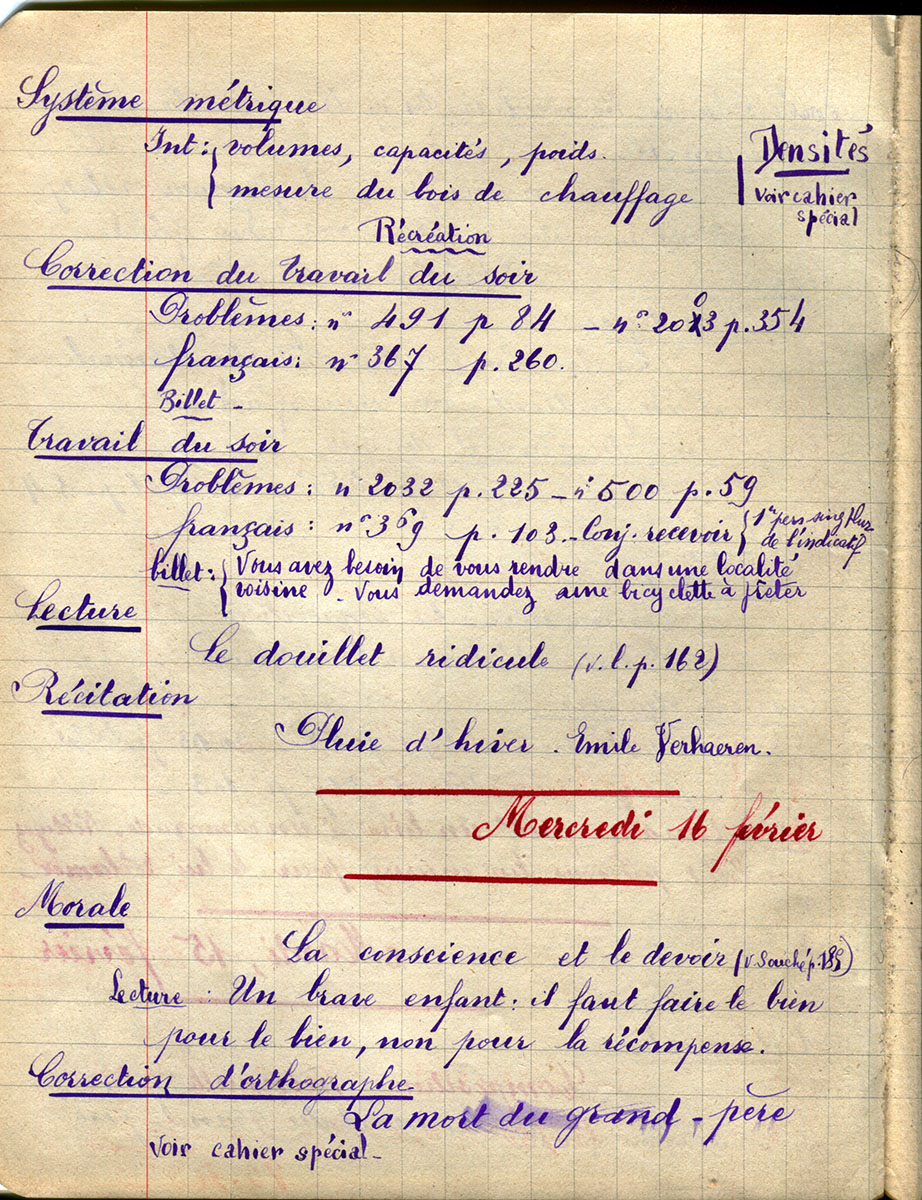 Système métrique
Int : volumes, capacités, poids.
mesure du bois de chauffage
Densités
Voir cahier
spécial
Récréation
Correction du travail du soir
Problèmes : n° 491 p 84 – n° 2003 p. 354
français : n° 367 p. 260.
Billet –
Travail du soir
Problèmes : n° 2032 p. 225 – n° 500 p. 59
français : n° 369 p. 103 – Conj. recevoir
1re pers sing plur
de l'indicatif
billet : Vous avez besoin de vous rendre dans une localité
voisine – Vous demandez une bicyclette à prêter
Lecture
Le douillet ridicule (v. l. p. 162)
Récitation
Pluie d'hiver. Emile Verhaeren.
Mercredi 16 février
Morale
La conscience et le devoir (v. Souché p.)
Lecture : Un brave enfant : il faut faire le bien
pour le bien, non pour la récompense.
Correction d'orthographe
La mort du grand-père
Voir cahier spécial –